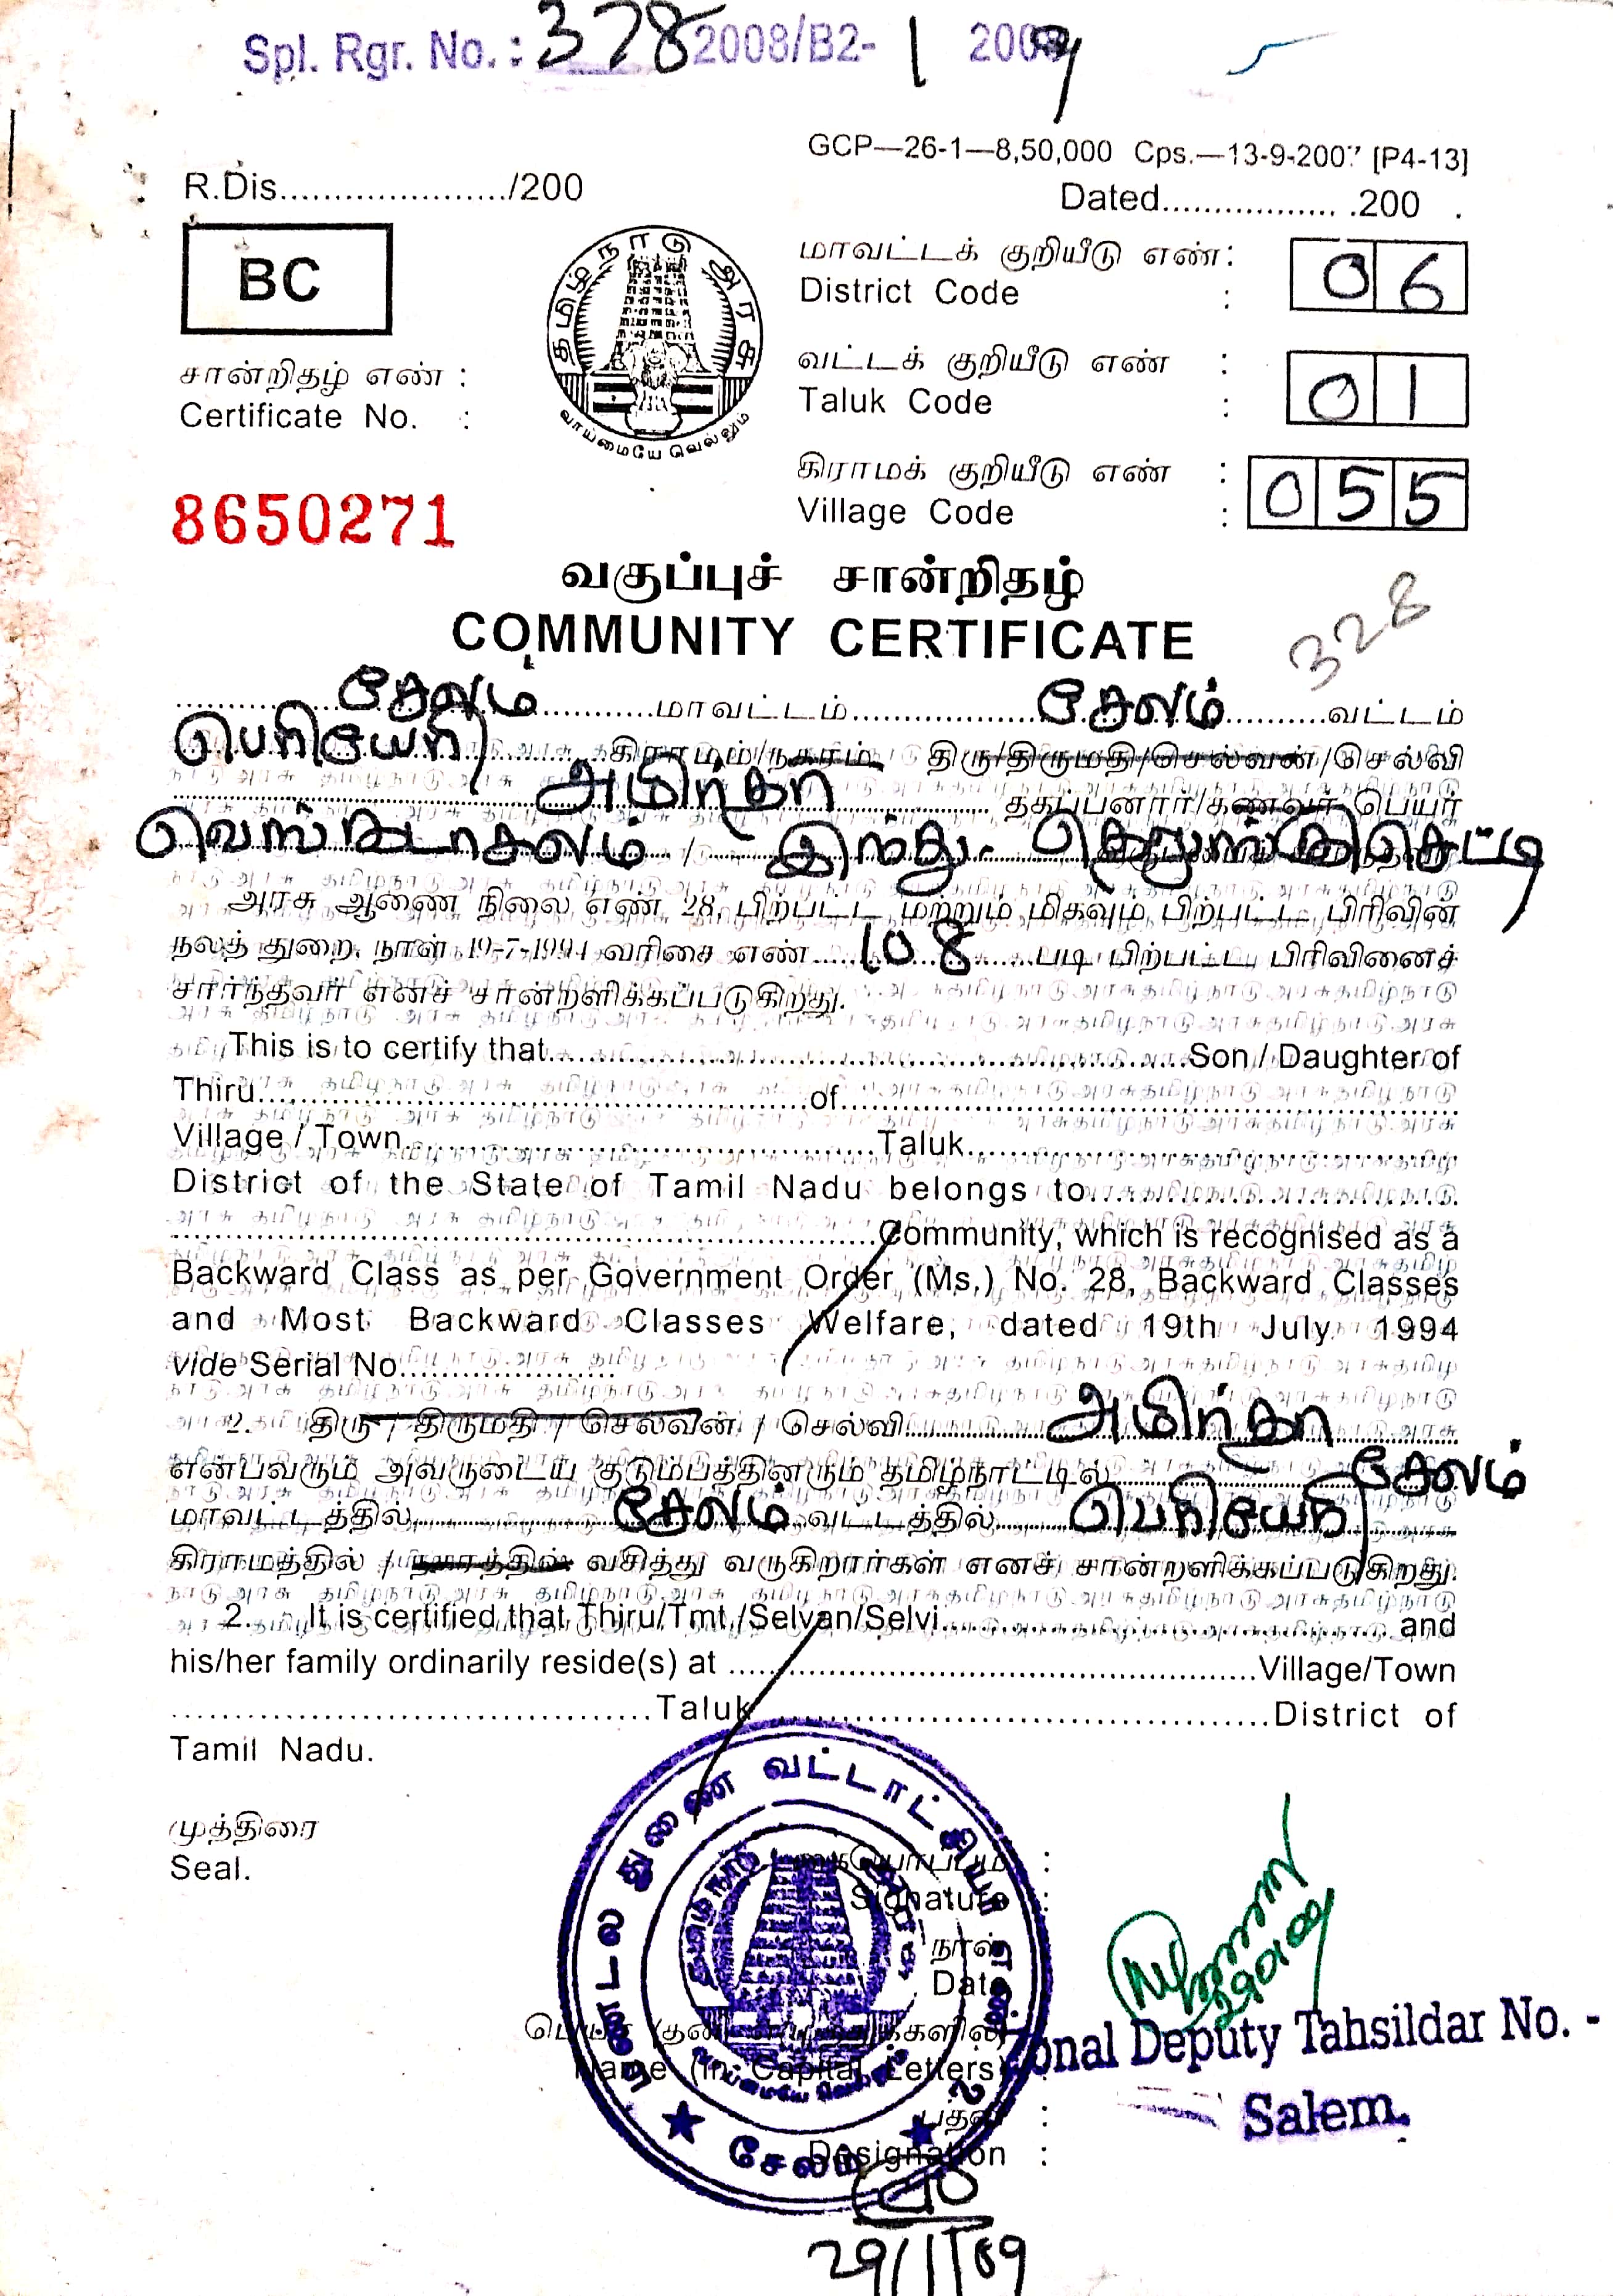 Spl. Rgr. No. : 378 2008/B2- 1 2009
GCP—26-1—8,50,000 Cps.—13-9-2007 [P4-13]
R.Dis...................../200
Dated................. .200 .
BC
தமிழ்நாடு அரசு
வாய்மையே வெல்லும்
மாவட்டக் குறியீடு எண் : 06
District Code :
சான்றிதழ் எண் :
Certificate No. :
வட்டக் குறியீடு எண் : 01
Taluk Code :
கிராமக் குறியீடு எண் : 055
Village Code :
8650271
வகுப்புச் சான்றிதழ்
COMMUNITY CERTIFICATE
328
சேலம் மாவட்டம் சேலம் வட்டம்
பெரியேரி கிராமம்/நகரம் திரு/திருமதி/செல்வன்/செல்வி
அமிர்தா தகப்பனார்/கணவர் பெயர்
வெங்கடாசலம் / இந்து- தெலுங்குசெட்டி
அரசு ஆணை நிலை எண் 28, பிற்பட்ட மற்றும் மிகவும் பிற்பட்ட பிரிவின்
நலத் துறை, நாள் 19-7-1994 வரிசை எண் 108 படி பிற்பட்ட பிரிவினைச்
சார்ந்தவர் எனச் சான்றளிக்கப்படுகிறது.
This is to certify that..........Son / Daughter of
Thiru..........of..........
Village / Town..........Taluk..........
District of the State of Tamil Nadu belongs to..........
..........Community, which is recognised as a
Backward Class as per Government Order (Ms.) No. 28, Backward Classes
and Most Backward Classes Welfare, dated 19th July 1994
vide Serial No..........
2. திரு / திருமதி / செல்வன் / செல்வி அமிர்தா
என்பவரும் அவருடைய குடும்பத்தினரும் தமிழ்நாட்டில் சேலம்
மாவட்டத்தில் சேலம் வட்டத்தில் பெரியேரி
கிராமத்தில் / நகரத்தில் வசித்து வருகிறார்கள் எனச் சான்றளிக்கப்படுகிறது.
2. It is certified that Thiru/Tmt./Selvan/Selvi.......... and
his/her family ordinarily reside(s) at ..........Village/Town
..........Taluk ..........District of
Tamil Nadu.
முத்திரை
Seal.
மண்டல துணை வட்டாட்சியர் எண் 2
சேலம்
கையொப்பம் :
Signature :
நாள்
Date
29/01/09
பெயர் (தனி எழுத்துக்களில்)
Name (in Capital Letters)
Zonal Deputy Tahsildar No. -
பதவி :
Salem.
Designation :
29/1/09